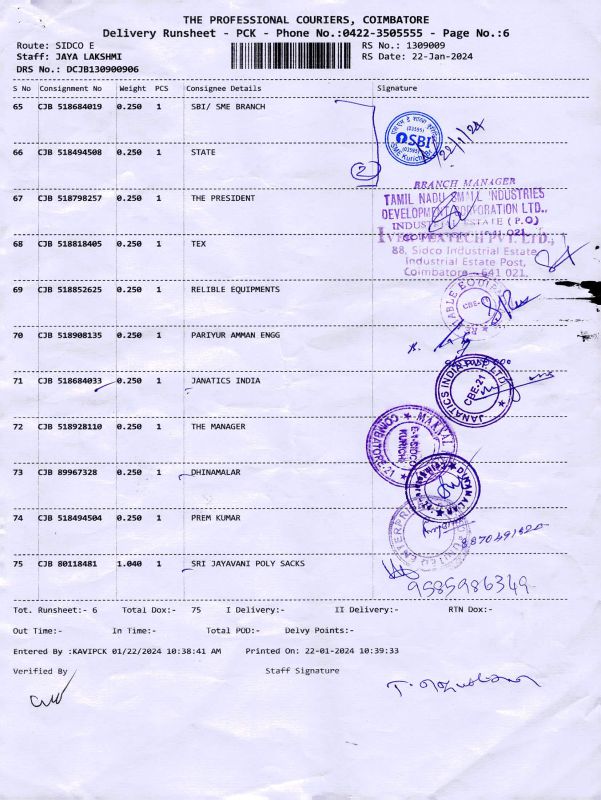 THE PROFESSIONAL COURIERS, COIMBATORE
Delivery Runsheet - PCK - Phone No.:0422-3505555 - Page No.:6
Route: SIDCO E RS No.: 1309009
Staff: JAYA LAKSHMI RS Date: 22-Jan-2024
DRS No.: DCJB130900906
S No Consignment No Weight PCS Consignee Details Signature
65 CJB 518684019 0.250 1 SBI/ SME BRANCH
SBI
22/1/24
66 CJB 518494508 0.250 1 STATE
2
BRANCH MANAGER
67 CJB 518798257 0.250 1 THE PRESIDENT
TAMIL NADU SMALL INDUSTRIES
DEVELOPMENT CORPORATION LTD.,
INDUSTRIAL ESTATE (P.O)
68 CJB 518818405 0.250 1 TEX
88, Sidco Industrial Estate
Industrial Estate Post,
Coimbatore - 641 021.
69 CJB 518852625 0.250 1 RELIBLE EQUIPMENTS
70 CJB 518908135 0.250 1 PARIYUR AMMAN ENGG
71 CJB 518684033 0.250 1 JANATICS INDIA
JANATICS INDIA PVT. LTD.
CBE-21
72 CJB 518928110 0.250 1 THE MANAGER
E-1-SIDCO
KURICHI
COIMBATORE-21
73 CJB 89967328 0.250 1 DHINAMALAR
DINAMALAR
74 CJB 518494504 0.250 1 PREM KUMAR
UNITED ENTERPRI
75 CJB 80118481 1.040 1 SRI JAYAVANI POLY SACKS
9585986349
Tot. Runsheet:- 6 Total Dox:- 75 I Delivery:- II Delivery:- RTN Dox:-
Out Time:- In Time:- Total POD:- Delvy Points:-
Entered By :KAVIPCK 01/22/2024 10:38:41 AM Printed On: 22-01-2024 10:39:33
Verified By Staff Signature